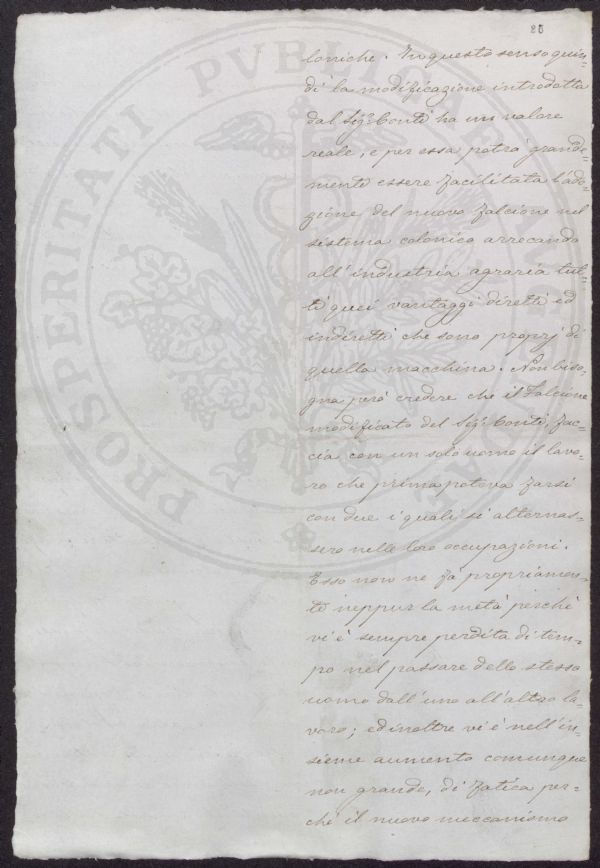 85
loniche. In questo senso quin=
di la modificazione introdotta
dal Sigr. Conti ha un valore
reale, e per essa potrà grande=
mente essere facilitata l'ado=
zione del nuovo falcione nel
sistema colonico arrecando
all'industria agraria tut=
ti quei vantaggi diretti ed
indiretti che sono proprj di
quella macchina. Non biso=
gna però credere che il Falcione
modificato del Sigr. Conti, fac=
cia con un solo uomo il lavo=
ro che prima poteva farsi
con due i quali si alternas=
sero nelle loro occupazioni.
Esso non ne fà propriamen=
te neppur la metà perchè
vi è sempre perdita di tem=
po nel passare dello stesso
uomo dall'uno all'altro la=
voro; ed inoltre vi è nell'in=
sieme aumento comunque
non grande, di fatica per=
chè il nuovo meccanismo
PROSPERITATI PVBLICAE AVGENDAE